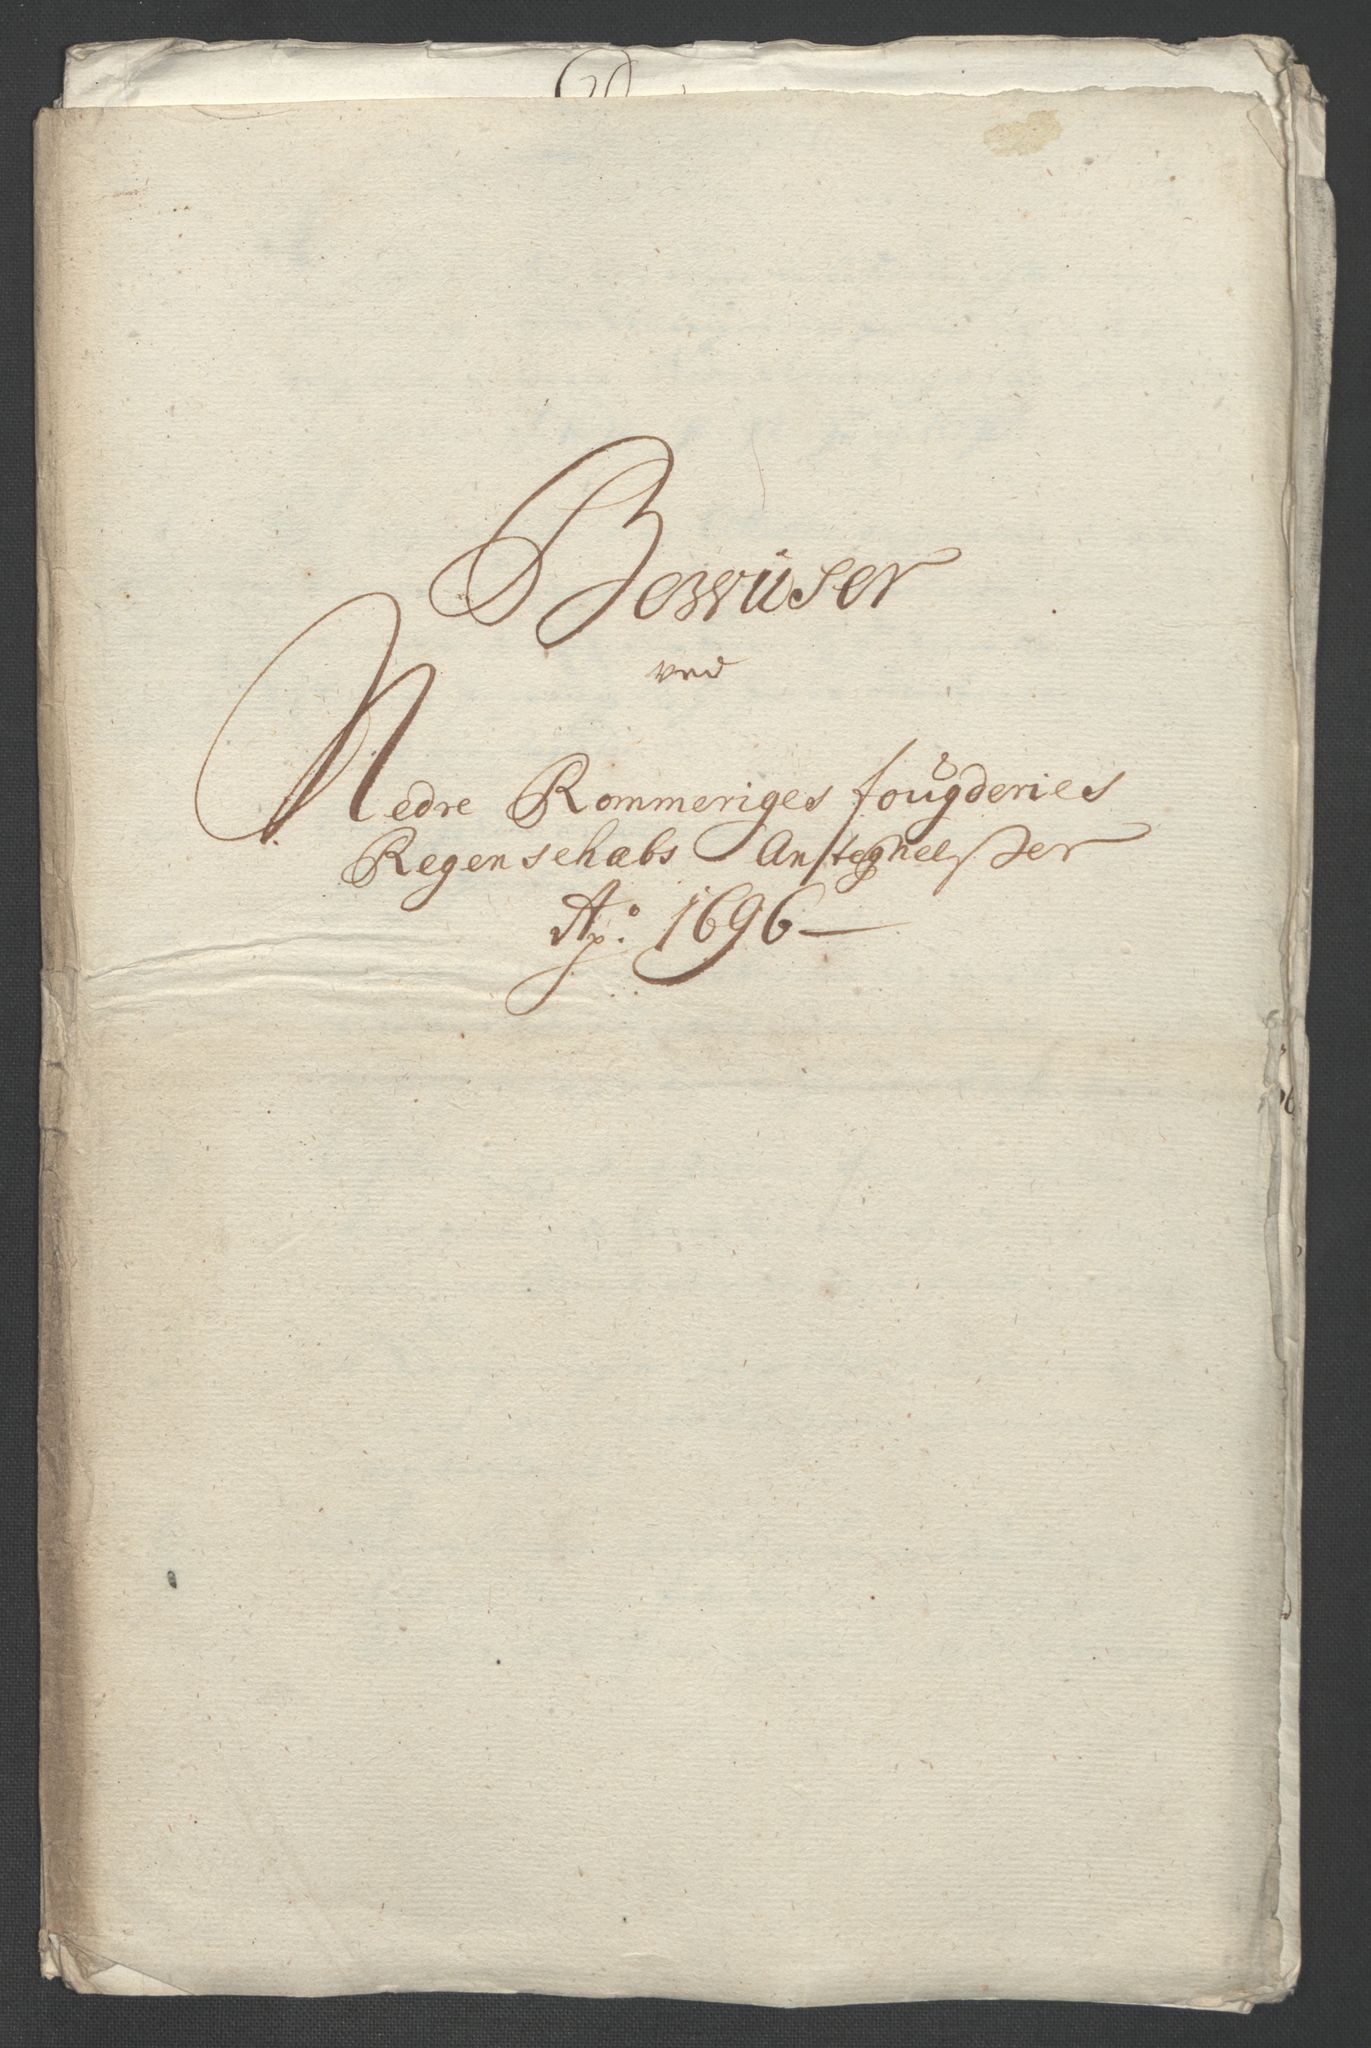 Bewüser
ved
Nedre Rommeriges fougderies
Regenschabs Antegnelsser
Ao: 1696